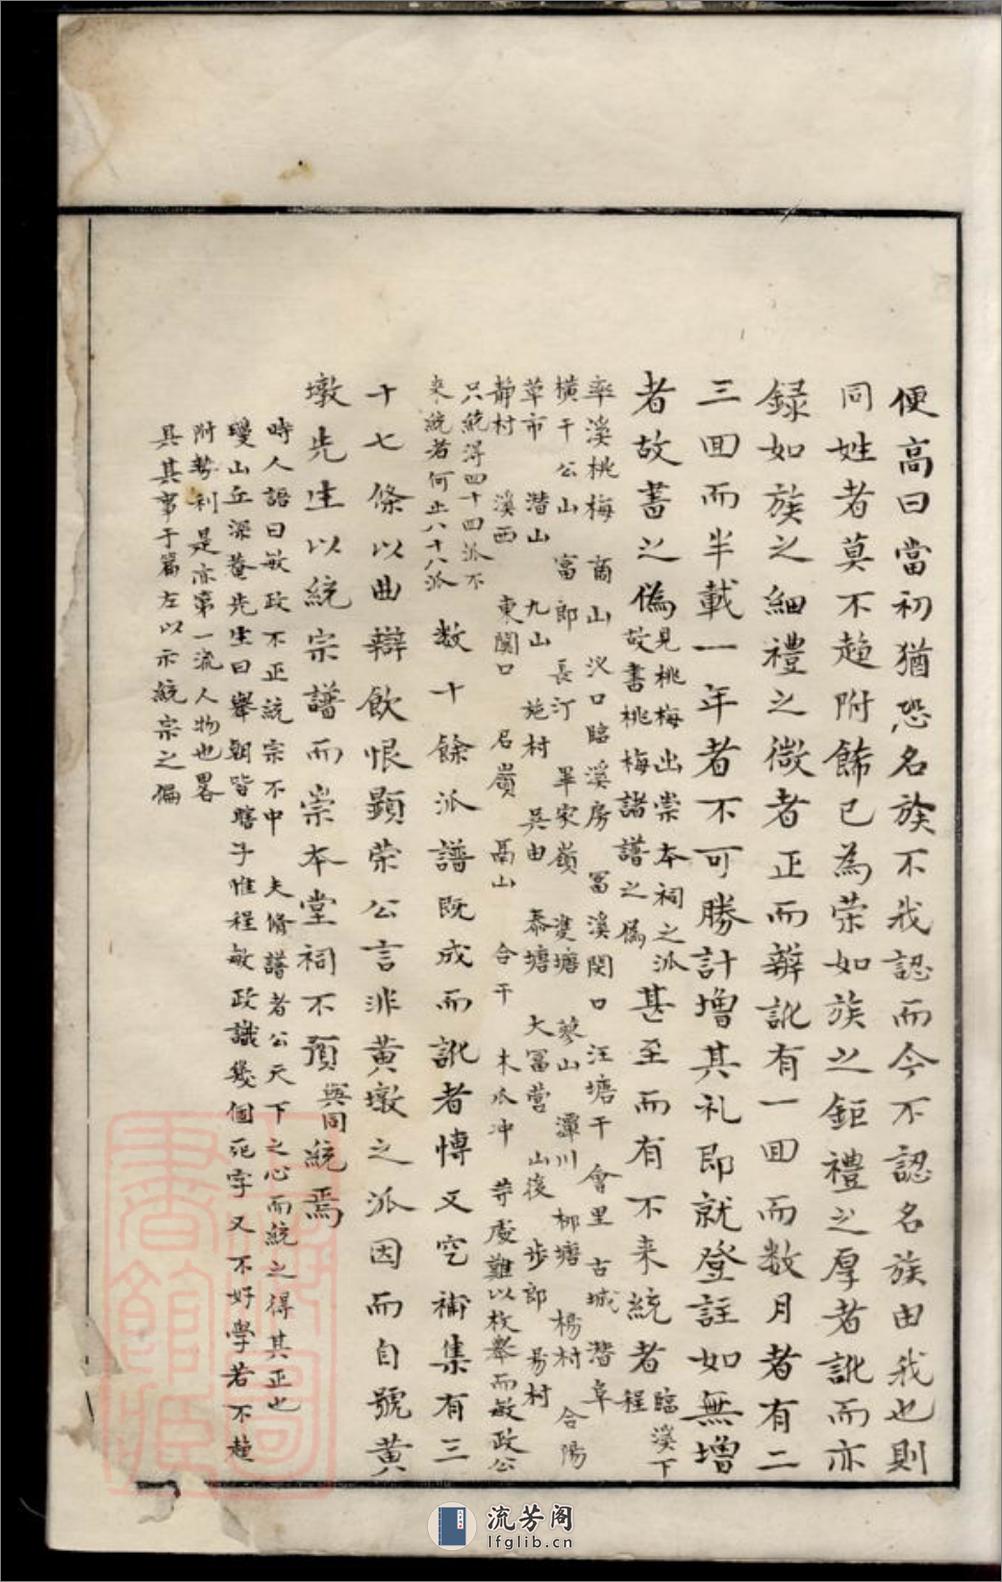 便高曰當初猶恐名族不我認而今不認名族由我也則
同姓者莫不趋附餙已為荣如族之鉅禮之厚者訛而亦
録如族之細禮之微者正而辨訛有一回而数月者有二
三回而半載一年者不可勝計增其礼即就登註如無增
者故書之偽見桃梅出崇本祠之派故書桃梅諸譜之偽甚至而有不来統者臨溪下程
率溪桃梅 商山 汊口臨溪房 冨溪閔口 汪塘干 會里 古城 潛阜
橫干 公山 富郎 長汀 畢家嶺 塘 蓼山 潭川 栁塘 楊村 合陽
草市 潛山 九山 施村 吴由 泰塘 大冨营 山後 步郎 易村
静村 溪西 東關口 君嶺 鬲山 合干 木瓜冲 等處難以枚舉而敏政公
只統淂四十四派不
来統者何止八十八派 数十餘派譜既成而訛者愽又穵補集有三
十七條以曲辯飲恨顯荣公言非黄墩之派因而自號黄
墩先生以統宗譜而崇本堂祠不預與同統焉
時人語曰敏政不正統宗不中 夫脩譜者公天下之心而統之得其正也
瓊山丘深菴先生曰舉朝皆瞎子惟程敏政識幾個死字又不好學若不趋
附势利是亦第一流人物也畧
具其事于篇左以示統宗之偏
流芳阁
lfglib.cn